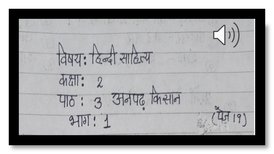 विषय: हिन्दी साहित्य
कक्षा: 2
पाठ: 3 अनपढ़ किसान
भाग: 1 (पेज 19)